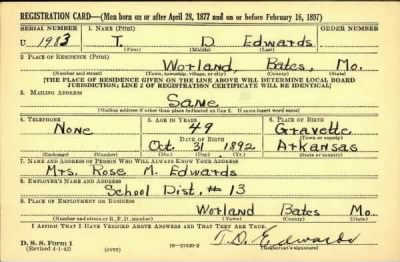 REGISTRATION CARD—(Men born on or after April 28, 1877 and on or before February 16, 1897)
SERIAL NUMBER 1. NAME (Print) ORDER NUMBER
U 1983 T. D Edwards
(First) (Middle) (Last)
2. PLACE OF RESIDENCE (Print)
Worland, Bates, Mo.
(Number and street) (Town, township, village, or city) (County) (State)
[THE PLACE OF RESIDENCE GIVEN ON THE LINE ABOVE WILL DETERMINE LOCAL BOARD
JURISDICTION; LINE 2 OF REGISTRATION CERTIFICATE WILL BE IDENTICAL]
3. MAILING ADDRESS
Same
[Mailing address if other than place indicated on line 2. If same insert word same]
4. TELEPHONE 5. AGE IN YEARS 6. PLACE OF BIRTH
None 49 Gravette
DATE OF BIRTH (Town or county)
Oct. 31 1892 Arkansas
(Exchange) (Number) (Mo.) (Day) (Yr.) (State or country)
7. NAME AND ADDRESS OF PERSON WHO WILL ALWAYS KNOW YOUR ADDRESS
Mrs. Rose M. Edwards
8. EMPLOYER'S NAME AND ADDRESS
School Dist. # 13
9. PLACE OF EMPLOYMENT OR BUSINESS
Worland Bates Mo.
(Number and street or R. F. D. number) (Town) (County) (State)
I AFFIRM THAT I HAVE VERIFIED ABOVE ANSWERS AND THAT THEY ARE TRUE.
D. S. S. Form 1 T. D. Edwards
(Revised 4-1-42) (over) (Registrant's signature)